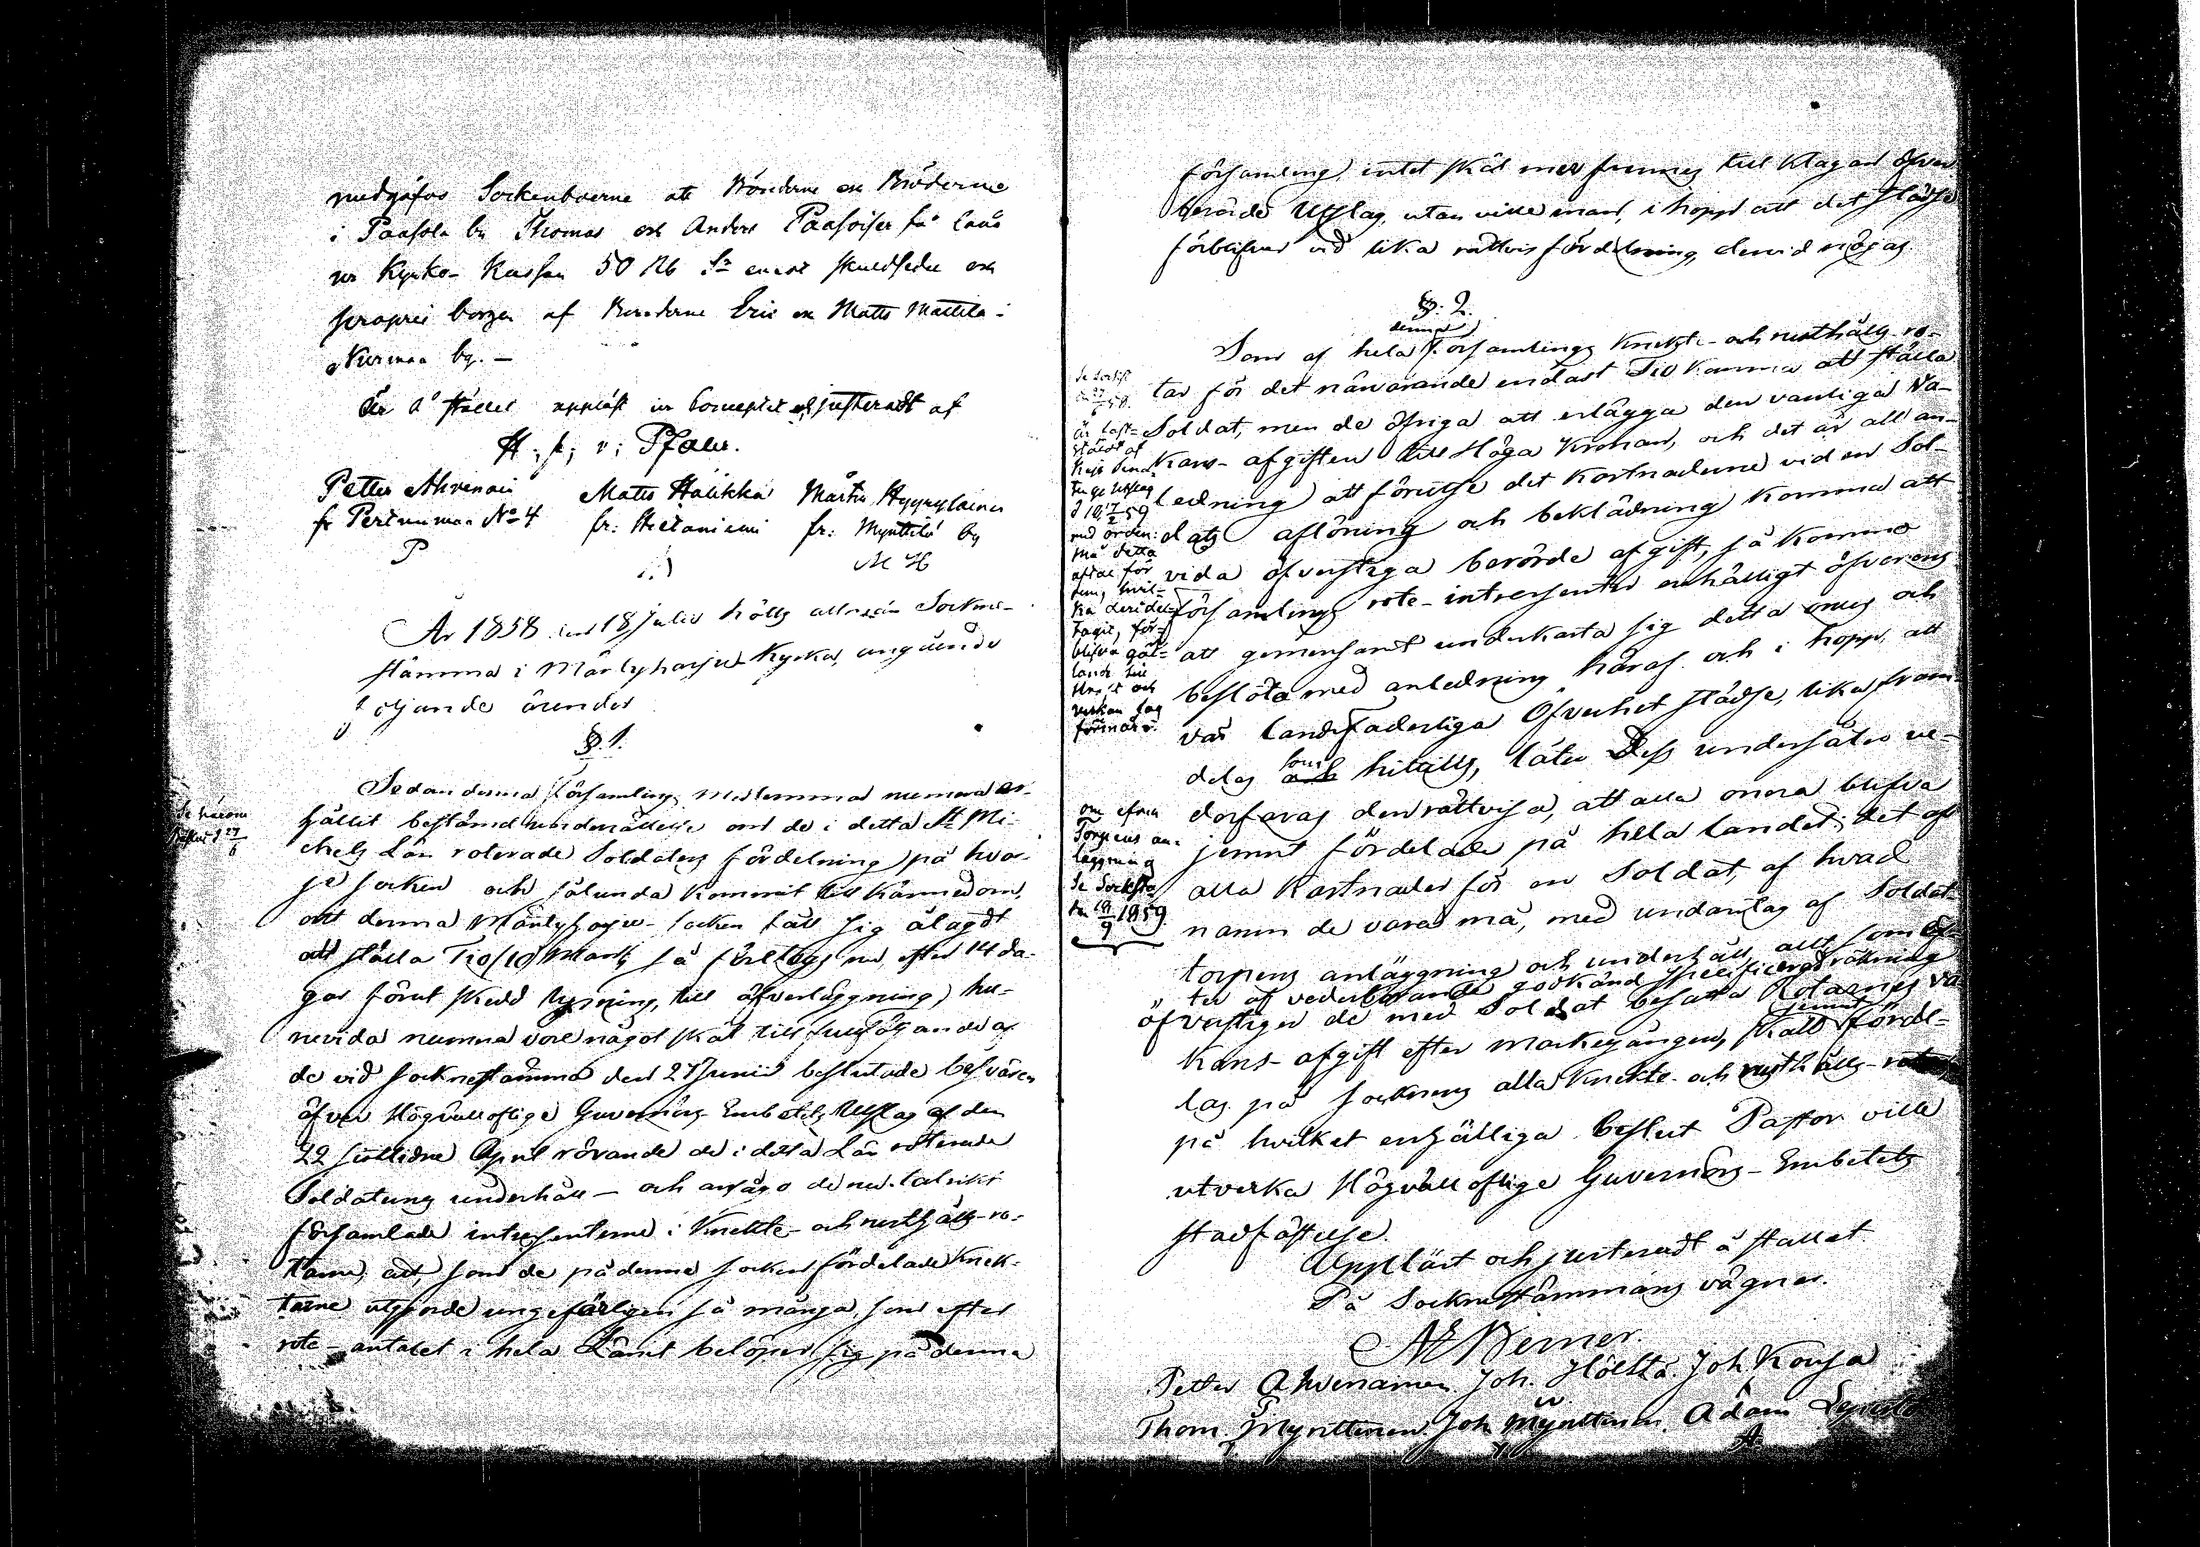 medgåfvo Sockenboerne att Bönderne och Bröderne
i Paasola by Thomas och Anders Paasoiser få låna
ur Kyrko-Kassan 50 Rb Sr emot skuldsedel och
proprie borgen af Bönderne Eric och Matts Mattila i
Nurmaa by. —
År å stället uppläst ur Conceptet och justeradt af
Petter Ahvenain Matts Halikka Mårten Hyyryläinen
fr Pertunmaa No 4 fr: Hietaniemi fr: Mynttilä by
P M H
År 1858 den 18 Julii hölls allmän Sockne-
stämma i Mäntyharju Kyrka, angående
följande ärender
§. 1.
Sedan denna församlings medlemmar numera er-
hållit bestämd underrättelse om de i detta St Mi-
chels Län roterade Soldaters fördelning på hvar-
je socken och sålunda kommit till kännedom,
att denna Mäntyharju-socken fått sig ålagdt
att ställa Tio/10/ Man; så företogs nu, efter 14 da-
gar förut skedd lysning, till öfverläggning, hu-
ruvida numera vore något skäl till fullföljande af
de vid socknestämma den 27 Junii beslutade besvären
öfver Högvälloflige Guvernörs-Embetets Utslag af den
22 sistlidne April rörande de i detta Län roterade
Soldaters underhåll — och ansågo de nu talrikt
församlade intressenterne i Knekte- och rusthålls-ro-
tarne, att, som de på denna socken fördelade Knek-
tarne utgjorde ungefärligen så många, som efter
rote-antalet i hela Länet belöper sig på denna
Se härom
församling, intet skäl mer finnes till klagan öfver
berörde Utslag, utan ville man, i hopp att det städse
förblifver vid lika rättvis fördelning, dervid nöjas
§. 2.
denna
Som af hela församlings Knekte- och rusthålls-ro-
tar för det närvarande endast Tio komma att ställa
Soldat, men de öfriga att erlägga den vanliga Va-
kans-afgiften till Höga Kronan, och det är all an-
ledning att förutse det kostnaderne vid en Sol-
dats aflöning och beklädning komma att
vida öfverstiga berörde afgift, så komma
församlings rote-intressenter enhälligt öfverens
att gemensamt underkasta sig detta onus och
beslöto med anledning häraf och i hopp, att
vår landsfaderliga Öfverhet städse, lika fram-
deles som hitills, låter Dess undersåter ve-
derfaras den rättvisa, att alla onera blifva
jemnt fördelade på hela landet; det af
alla kostnader för en Soldat, af hvad
namn de vara må, med undantag af Soldat-
torpens anläggning och underhåll, allt som ef-
ter af vederbörande godkänd specificerad räkning
öfverstiger de med Soldat besatta Rotarnes va-
kans-afgift efter markegången, skall jemnt förde-
las på socknens alla Knekte- och rusthålls-rotar,
på hvilket enhälliga beslut Pastor ville
utverka Högvälloflige Guvernörs-Embetets
stadfästelse.
Uppläst och justeradt å stället
På Socknestämmans vägnar.
Petter Ahvenainen Joh. Hölttä. Joh Kousa
Thom. Mynttinen. Joh Mynttinen. Adam
är fast-
stäldt af
ten ge Utslag
d 17/2 59
med ordan:
må detta
aftal för
dem, hvil-
ka deri del-
tagit, för-
blifva gäl-
lande till
verkan lag
förmår.
om efven
Torpens an-
läggning
Se Sockst
den 18/9 1859